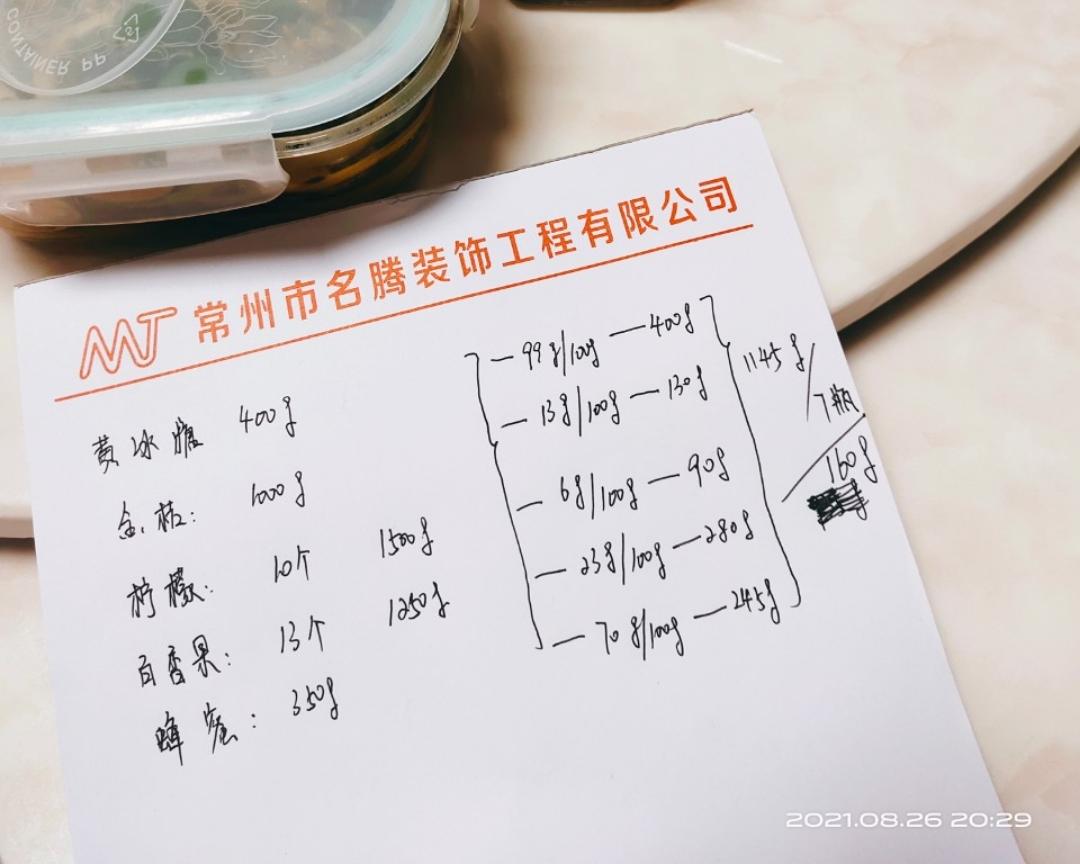 CONTAINER PP
MT 常州市名腾装饰工程有限公司
黄冰糖 400g — 99g/100g — 400g
金桔: 1000g — 13g/100g — 130g
柠檬: 10个 1500g — 6g/100g — 90g
百香果: 13个 1250g — 23g/100g — 280g
蜂蜜: 350g — 70g/100g — 245g
1145g/7瓶
160g
2021.08.26 20:29